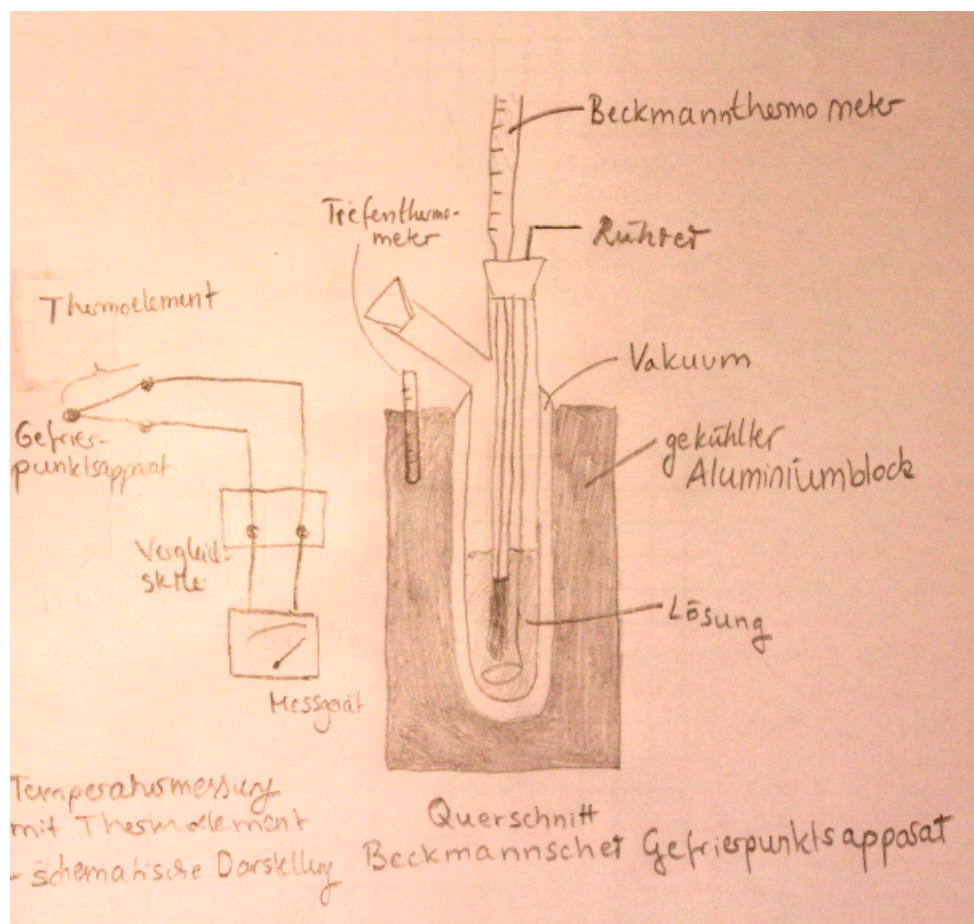 Beckmannthermometer
Tiefenthermo-
meter
Rührer
Thermoelement
Vakuum
Gefrier-
punktsapparat
gekühlter
Aluminiumblock
Vergleich-
Lösung
Messgerät
Temperaturmessung
mit Thermoelement
- schematische Darstellung
Querschnitt
Beckmannscher Gefrierpunktsapparat